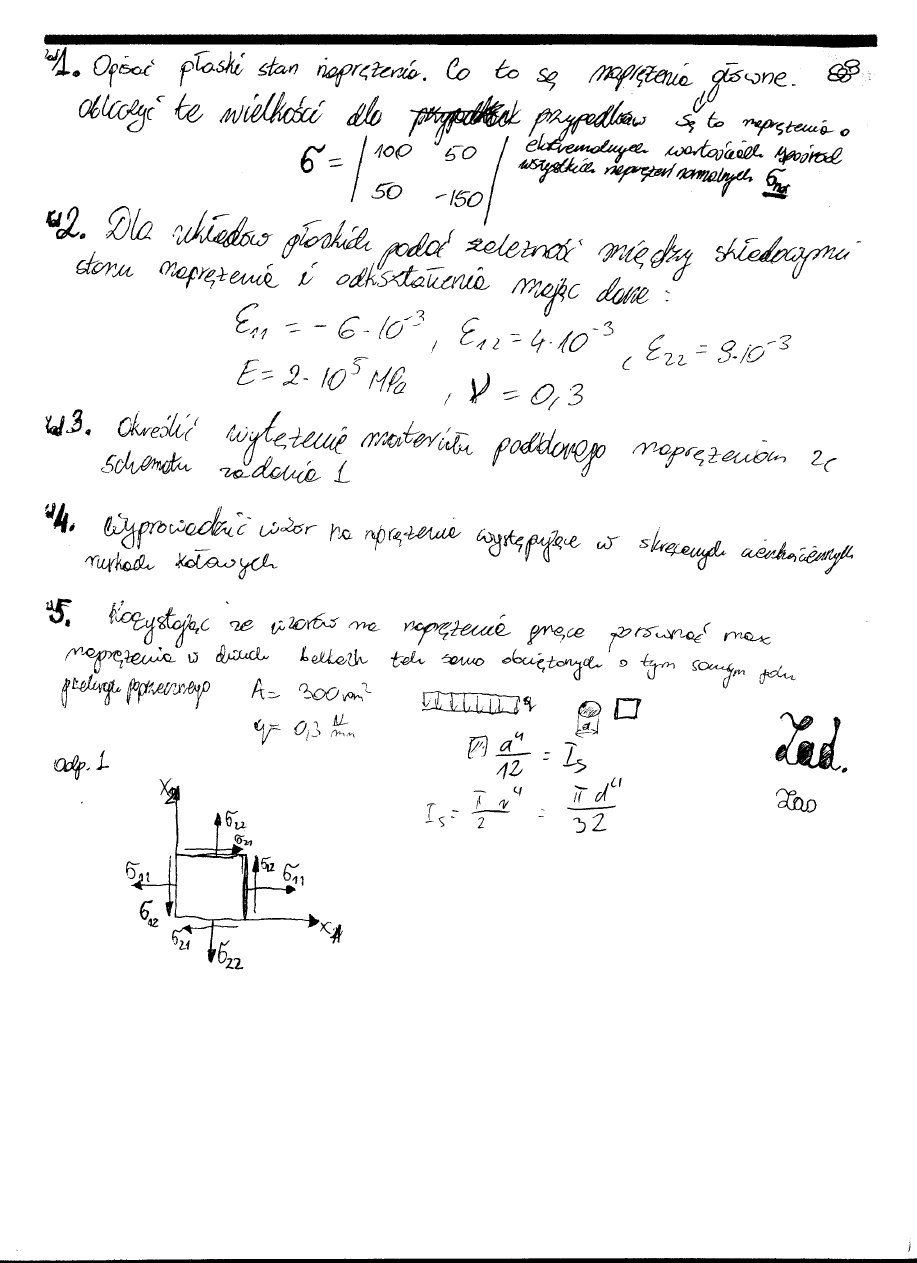 zad 1. Opisać płaski stan naprężenia. Co to są naprężenia główne.
obliczyć te wielkości dla przypadków Są to naprężenia o
ekstremalnych wartościach spośród
wszystkich naprężeń normalnych σ
σ = | 100 50 |
| 50 -150 |
zad 2. Dla układów płaskich podać zależność między składowymi
stanu naprężenia i odkształcenia mając dane :
ε11 = - 6·10^-3 , ε12 = 4·10^-3 , ε22 = 9·10^-3
E = 2·10^5 MPa , ν = 0,3
zad 3. Określić wytężenie materiału poddanego naprężeniom ze
schematu zadania 1
zad 4. Wyprowadzić wzór na naprężenia występujące w skręcanych cienkościennych
rurkach kołowych
zad 5. Kożystając ze wzorów na naprężenia gnące porównać max
naprężenia w dwuch belkach tak samo obciętonych o tym samym polu
przekroju poprzecznego A = 300 mm²
q = 0,3 N/mm
q
a
a^4/12 = Is
Is = π r^4/2 = π d^4/32
Zad.
Zad
odp. 1
X2
σ22
σ21
σ12
σ11
σ11
σ12
σ21
σ22
X1